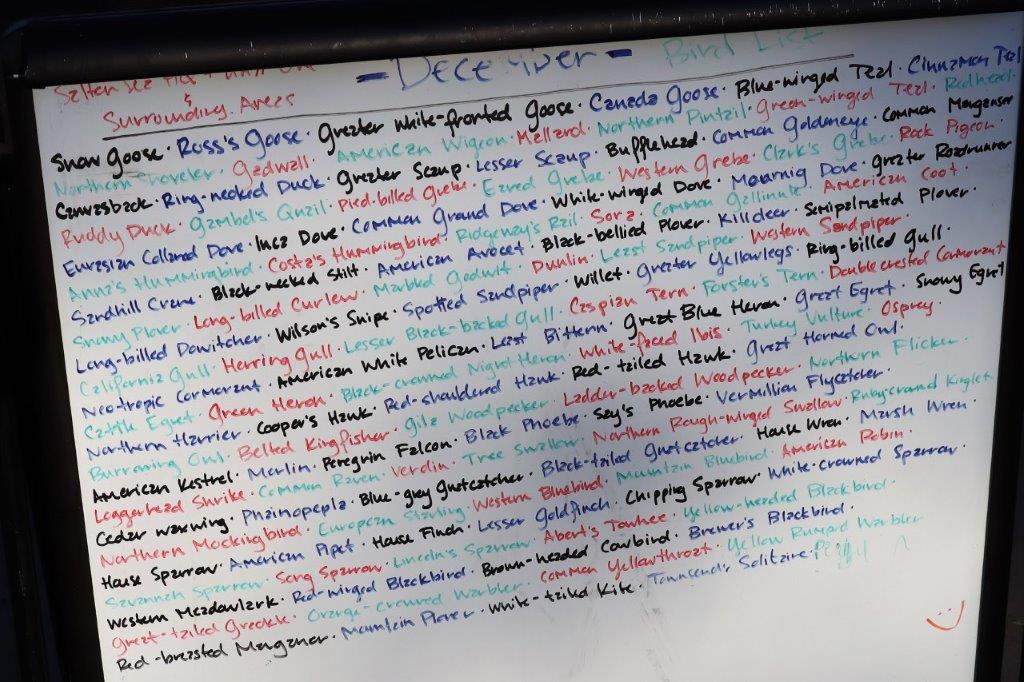 - December - Bird List
Surrounding Areas
Snow Goose · Ross's Goose · Greater White-fronted Goose · Canada Goose · Blue-winged Teal · Cinnamon Teal
Northern Shoveler · Gadwall · American Wigeon · Mallard · Northern Pintail · Green-winged Teal · Redhead
Canvasback · Ring-necked Duck · Greater Scaup · Lesser Scaup · Bufflehead · Common Goldeneye · Common Merganser
Ruddy Duck · Gambel's Quail · Pied-billed Grebe · Eared Grebe · Western Grebe · Clark's Grebe · Rock Pigeon
Eurasian Collared Dove · Inca Dove · Common Grand Dove · White-winged Dove · Mournig Dove · Greater Roadrunner
Anna's Hummingbird · Costa's Hummingbird · Ridgeway's Rail · Sora · Common Gallinule · American Coot
Sandhill Crane · Black-necked Stilt · American Avocet · Black-bellied Plover · Killdeer · Semipalmated Plover
Snowy Plover · Long-billed Curlew · Marbled Godwit · Dunlin · Least Sandpiper · Western Sandpiper
Long-billed Dowitcher · Wilson's Snipe · Spotted Sandpiper · Willet · Greater Yellowlegs · Ring-billed Gull
California Gull · Herring Gull · Lesser Black-backed Gull · Caspian Tern · Forster's Tern · Double crested Cormorant
Neotropic Cormorant · American White Pelican · Least Bittern · Great Blue Heron · Great Egret · Snowy Egret
Cattle Egret · Green Heron · Black-crowned Night Heron · White-faced Ibis · Turkey Vulture · Osprey
Northern Harrier · Cooper's Hawk · Red-shouldered Hawk · Red-tailed Hawk · Great Horned Owl
Burrowing Owl · Belted Kingfisher · Gila Woodpecker · Ladder-backed Woodpecker · Northern Flicker
American Kestrel · Merlin · Peregrin Falcon · Black Phoebe · Say's Phoebe · Vermillion Flycatcher
Loggerhead Shrike · Common Raven · Verdin · Tree Swallow · Northern Rough-winged Swallow · Ruby-crowned Kinglet
Cedar waxwing · Phainopepla · Blue-grey Gnatcatcher · Black-tailed Gnatcatcher · House Wren · Marsh Wren
Northern Mockingbird · European Starling · Western Bluebird · Mountain Bluebird · American Robin
House Sparrow · American Pipet · House Finch · Lesser Goldfinch · Chipping Sparrow · White-crowned Sparrow
Savannah Sparrow · Song Sparrow · Lincoln's Sparrow · Abert's Towhee · Yellow-headed Blackbird
Western Meadowlark · Red-winged Blackbird · Brown-headed Cowbird · Brewer's Blackbird
Great-tailed Grackle · Orange-crowned Warbler · Common Yellowthroat · Yellow Rumped Warbler
Red-breasted Merganser · Mountain Plover · White-tailed Kite · Townsend's Solitaire